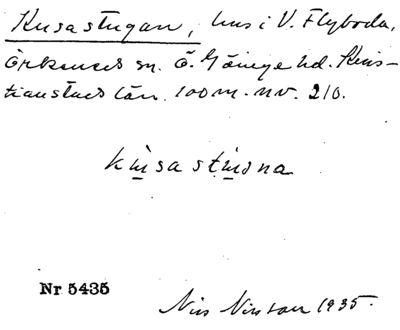 Kusastugan, hus i V. Flyboda,
Örkeneds sn. Ö. Göinge hd. Kris-
tianstads län. 100 m. nv. 210.
Nr 5435
Nils Nilsson 1935.